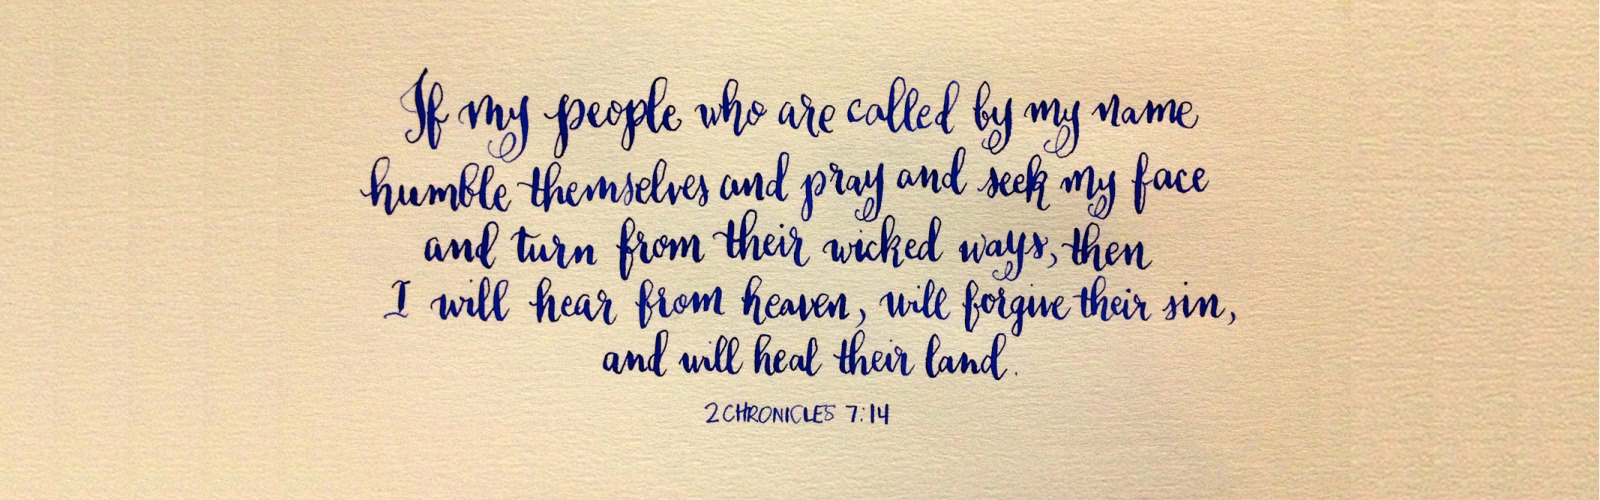 If my people who are called by my name
humble themselves and pray and seek my face
and turn from their wicked ways, then
I will hear from heaven, will forgive their sin,
and will heal their land.
2 CHRONICLES 7:14